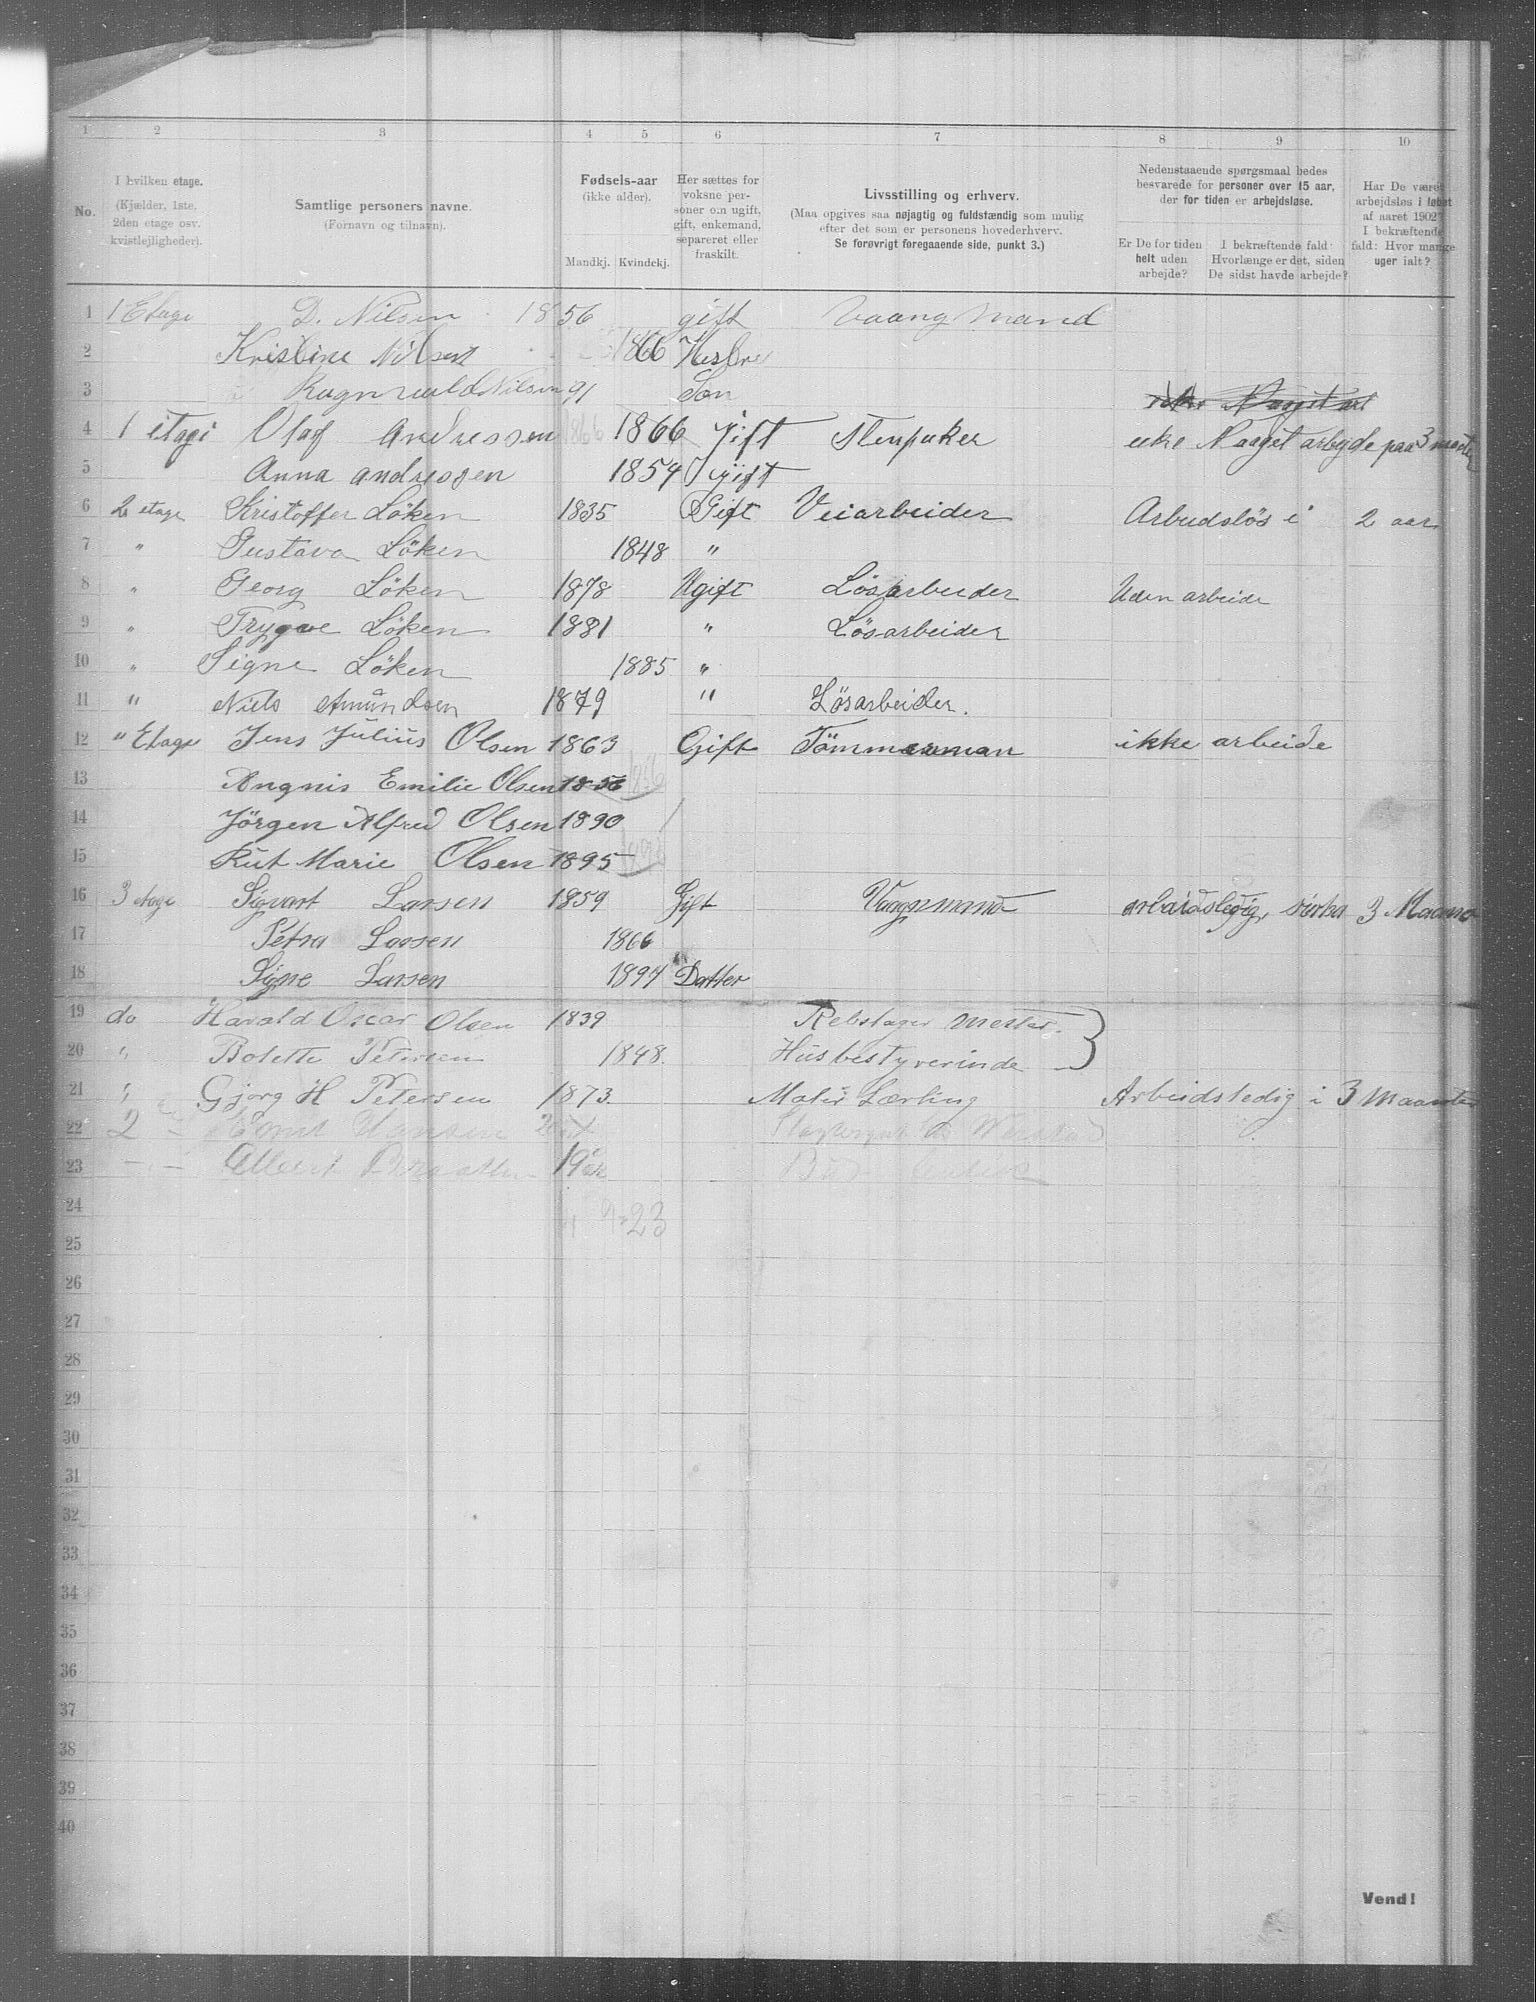 1 2 3 4 5 6 7 8 9 10
No.
I hvilken etage.
(Kjælder, 1ste.
2den etage osv.
kvistlejligheder).
Samtlige personers navne.
(Fornavn og tilnavn).
Fødsels-aar
(ikke alder).
Mandkj. Kvindekj.
Her sættes for
voksne per-
soner om ugift,
gift, enkemand,
separeret eller
fraskilt.
Livsstilling og erhverv.
(Maa opgives saa nøjagtig og fuldstændig som mulig
efter det som er personens hovederhverv.
Se forøvrigt foregaaende side, punkt 3.)
Nedenstaaende spørgsmaal bedes
besvarede for personer over 15 aar,
der for tiden er arbejdsløse.
Er De for tiden
helt uden
arbejde?
I bekræftende fald:
Hvorlænge er det, siden
De sidst havde arbejde?
Har De været
arbejdsløs i løbet
af aaret 1902?
I bekræftende
fald: Hvor mange
uger ialt?
1 1 Etage D. Nilsen 1856 gift Vaang Mand
2 Kristine Nilsen 1866
3 Ragnvald Nilsen 91 Søn
4 1 etage Olaf Andressen 1866 Gift Stenpuker Naaget arbyde paa 3
5 Anna Andressen 1854 Gift
6 2 etage Kristoffer Löken 1835 Gift Veiarbeider Arbudslös i 2 aar
7 " Gustava Löken 1848 "
8 " Georg Löken 1878 Ugift Lösarbeider Uden arbeide
9 " Trygve Löken 1881 " Lösarbeider
10 " Signe Löken 1885 "
11 " Niels Amundsen 1879 " Lösarbeider.
12 " Etage Jens Julius Olsen 1863 Gift Tömmerman ikke arbeide
13 Angnis Emilie Olsen 1856
14 Jörgen Alfred Olsen 1890
15 Rut Marie Olsen 1895
16 3 etage Sigvart Larsen 1859 Gift Vaagnmand arbaidsledig, sirka 3
17 Petra Larsen 1866
18 Signe Larsen 1894 Datter
19 do Harald Oscar Olsen 1839 Rebslager Mester.
20 " Bolette Petersen 1848. Husbestyrerinde
21 " Gjorg H Petersen 1873. Maler Lærling Arbeidsledig i 3 Maaneder
22 2 Hansen
23 Albert Braathen 19
24 23
25
26
27
28
29
30
31
32
33
34
35
36
37
38
39
40
Vend!